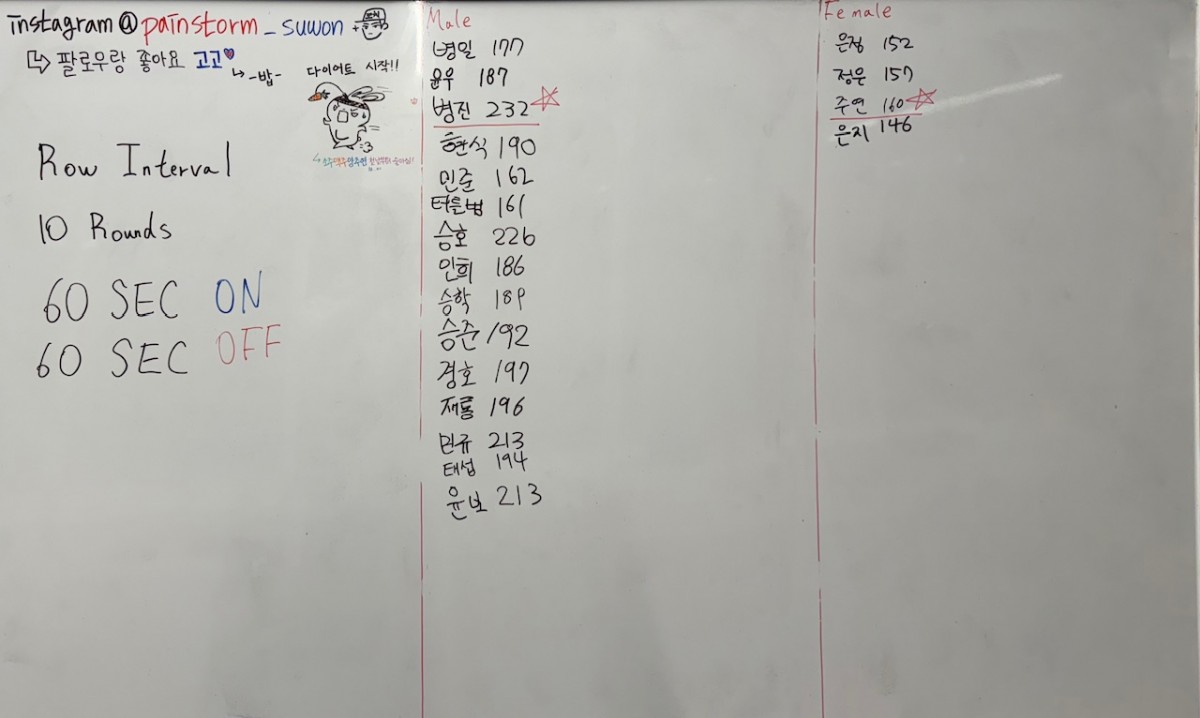 instagram@painstorm_suwon
팔로우랑 좋아요 고고
-밥-
다이어트 시작!!
Row Interval
10 Rounds
60 SEC ON
60 SEC OFF
Male
병일 177
윤우 187
병진 232
현식 190
민준 162
터틀범 161
승호 226
인희 186
승학 189
승준 192
경호 197
재룡 196
민규 213
태섭 194
윤보 213
Female
은정 152
정은 157
주연 160
은지 146